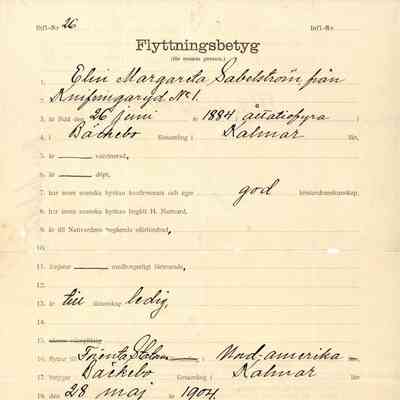 Utfl.-No 26 Infl.-No
Flyttningsbetyg
(för ensam person.)
1. Elin Margareta Sabelström från
2. Knifingaryd No 1.
3. är född den 26 juni år 1884 åttatiofyra (
4. i Bäckebo församling i Kalmar län,
5. är vaccinerad,
6. är döpt,
7. har inom svenska kyrkan konfirmerats och eger god kristendomskunskap,
8. har inom svenska kyrkan begått H. Nattvard,
9. är till Nattvardens begående oförhindrad,
10.
11. åtnjuter medborgerligt förtroende,
12.
13. är till äktenskap ledig,
14.
15.
16. flyttar till i Nord-amerika
17. betygar Bäckebo församling i Kalmar län
18. den 28 maj år 1904.